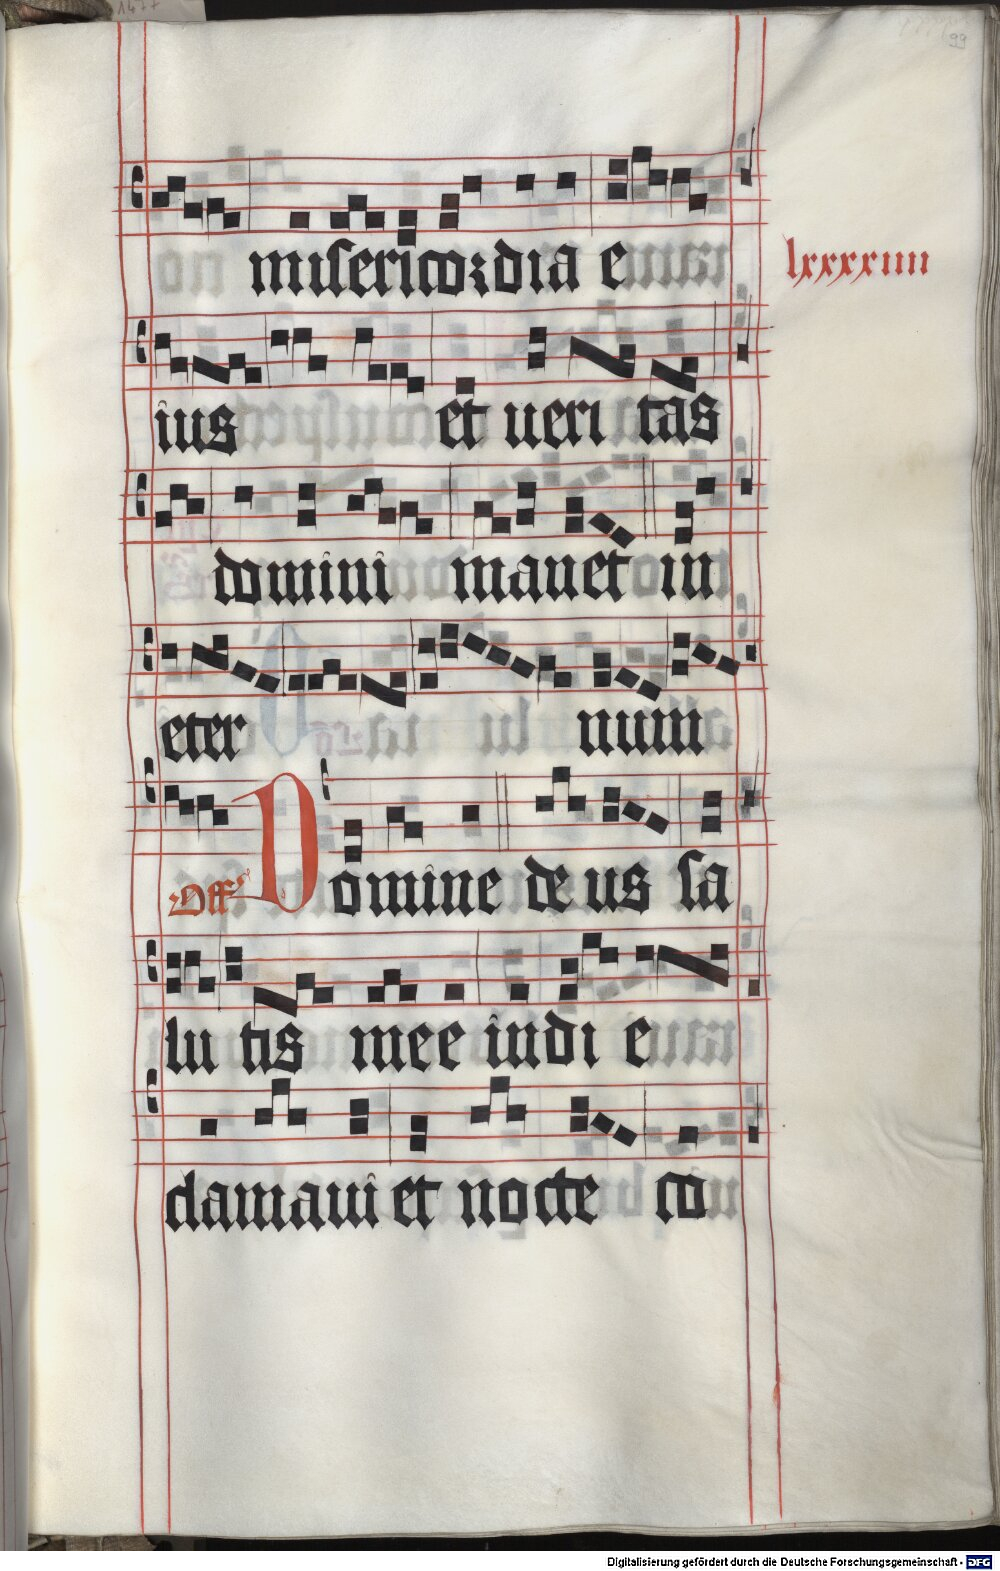 1477
99
misericordia e
lxxxxiiii
ius et ueri tas
domini manet in
eter num
Off Domine de us sa
lu tis mee in di e
clamaui et nocte co
Digitalisierung gefördert durch die Deutsche Forschungsgemeinschaft - DFG